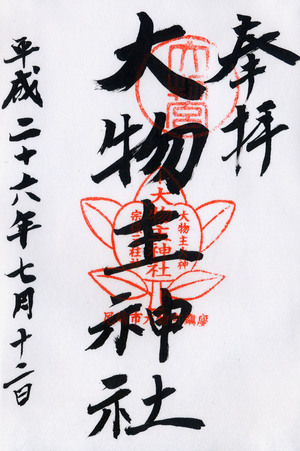 奉拝
大物主神社
平成二十六年七月十二日
大物主神社
大物主大神